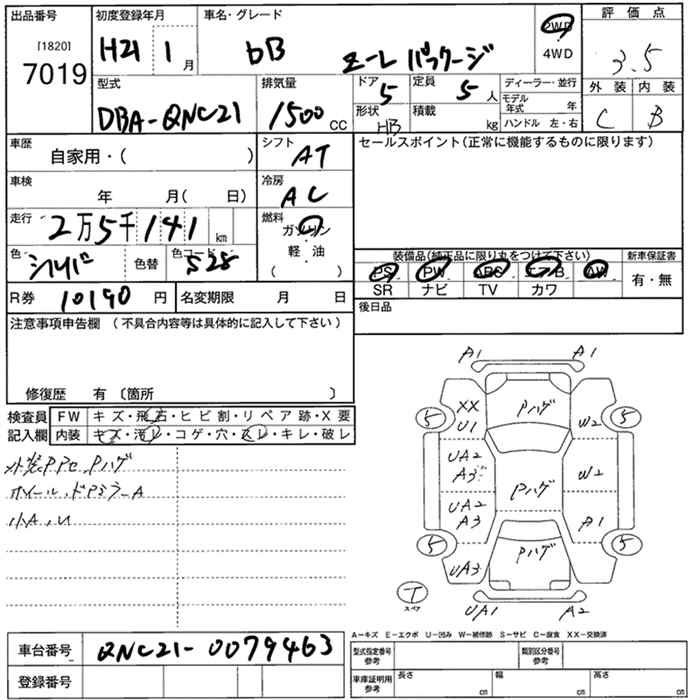 出品番号
[1820]
7019
初度登録年月
H21 1 月
車名・グレード
bB Z-L パッケージ
2WD
4WD
評価点
3.5
外装 内装
C B
型式
DBA-QNC21
排気量
1500 CC
ドア 5
形状 HB
定員 5 人
積載 kg
ディーラー・並行
モデル年式 年
ハンドル 左・右
車歴
自家用・( )
シフト AT
セールスポイント(正常に機能するものに限ります)
車検 年 月( 日)
冷房 AC
走行 2万5千141 km
燃料 ガソリン・軽・油
( )
色 シルバ 色替 色コード S28
装備品(純正品に限り丸をつけて下さい)
新車保証書
PS PW ABS エアB AW
SR ナビ TV カワ
有・無
R券 10190 円
名変期限 月 日
後日品
注意事項申告欄 (不具合内容等は具体的に記入して下さい)
修復歴 有 〔箇所 〕
検査員記入欄
FW キズ・飛石・ヒビ割・リペア跡・X要
内装 キズ・汚レ・コゲ・穴・スレ・キレ・破レ
Pハゲ
ホイール、ドアミラーA
小A、U
A1 A1
XX
U1
Pハゲ
W2
5 5
UA2
A3
Pハゲ
W2
UA2
A3
A1
5 5
UA3
Pハゲ
T
スペア
UA1 A2
A-キズ E-エクボ U-凹み W-補修跡 S-サビ C-腐食 XX-交換済
車台番号 QNC21-0079463
型式指定番号 参考
類別区分番号 参考
登録番号
車庫証明用 参考
長さ cm
幅 cm
高さ cm